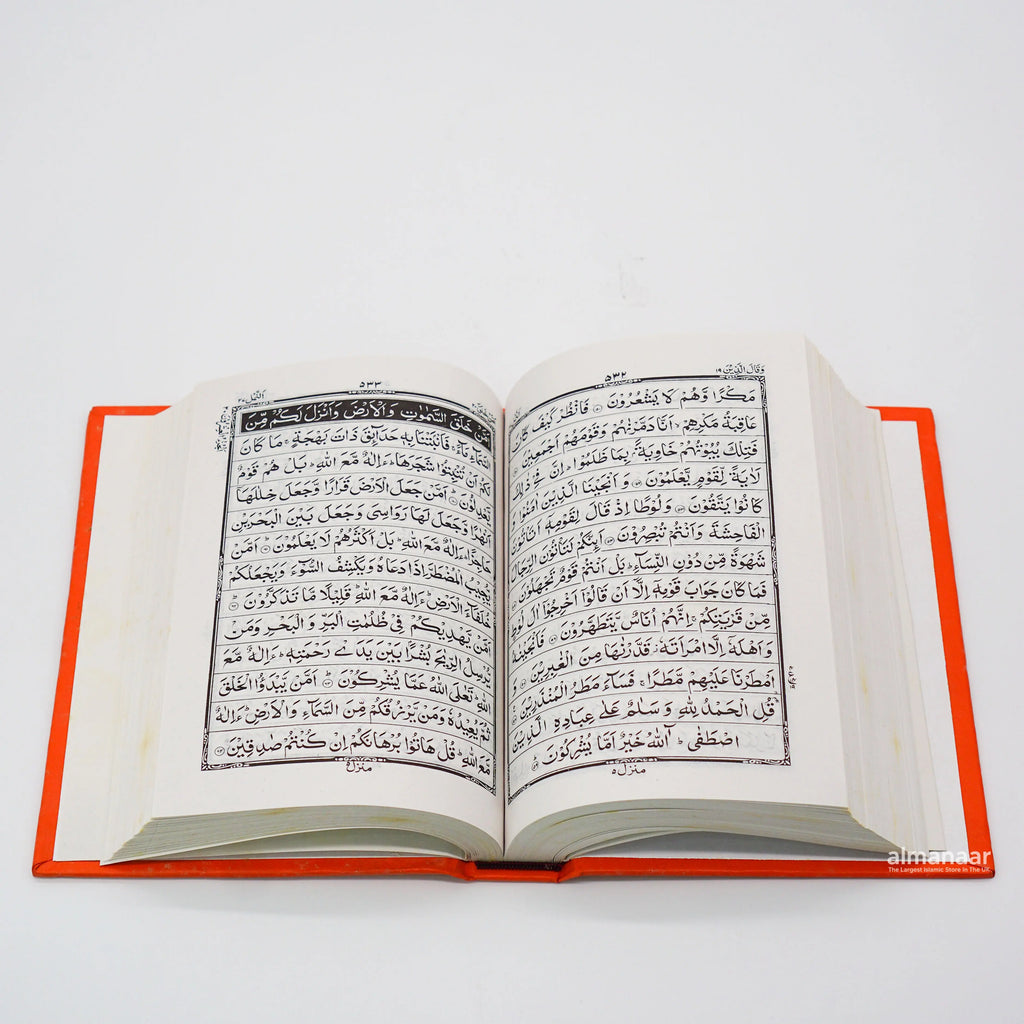 وَقَالَ الَّذِيْنَ ١٩
٥٣٢
مَكْرًا وَّهُمْ لَا يَشْعُرُوْنَ ۝ فَانْظُرْ كَيْفَ كَانَ
عَاقِبَةُ مَكْرِهِمْ ۙ اَنَّا دَمَّرْنٰهُمْ وَقَوْمَهُمْ اَجْمَعِيْنَ ۝
فَتِلْكَ بُيُوْتُهُمْ خَاوِيَةًۢ بِمَا ظَلَمُوْا ؕ اِنَّ فِيْ ذٰلِكَ
لَاٰيَةً لِّقَوْمٍ يَّعْلَمُوْنَ ۝ وَاَنْجَيْنَا الَّذِيْنَ اٰمَنُوْا وَ
كَانُوْا يَتَّقُوْنَ ۝ وَلُوْطًا اِذْ قَالَ لِقَوْمِهٖۤ اَتَاْتُوْنَ
الْفَاحِشَةَ وَاَنْتُمْ تُبْصِرُوْنَ ۝ اَئِنَّكُمْ لَتَاْتُوْنَ الرِّجَالَ
شَهْوَةً مِّنْ دُوْنِ النِّسَآءِ ؕ بَلْ اَنْتُمْ قَوْمٌ تَجْهَلُوْنَ ۝
فَمَا كَانَ جَوَابَ قَوْمِهٖۤ اِلَّاۤ اَنْ قَالُوْۤا اَخْرِجُوْۤا اٰلَ لُوْطٍ
مِّنْ قَرْيَتِكُمْ ۚ اِنَّهُمْ اُنَاسٌ يَّتَطَهَّرُوْنَ ۝ فَاَنْجَيْنٰهُ
وَاَهْلَهٗۤ اِلَّا امْرَاَتَهٗ ؗ قَدَّرْنٰهَا مِنَ الْغٰبِرِيْنَ ۝ وَ
اَمْطَرْنَا عَلَيْهِمْ مَّطَرًا ۚ فَسَآءَ مَطَرُ الْمُنْذَرِيْنَ ۝
قُلِ الْحَمْدُ لِلّٰهِ وَسَلٰمٌ عَلٰى عِبَادِهِ الَّذِيْنَ
اصْطَفٰى ؕ آٰللّٰهُ خَيْرٌ اَمَّا يُشْرِكُوْنَ ۝
منزل ٥
٥٣٣
اَلنَّمْل ٢٧
اَمَّنْ خَلَقَ السَّمٰوٰتِ وَالْاَرْضَ وَاَنْزَلَ لَكُمْ مِّنَ
السَّمَآءِ مَآءً ۚ فَاَنْۢبَتْنَا بِهٖ حَدَآئِقَ ذَاتَ بَهْجَةٍ ۚ مَا كَانَ
لَكُمْ اَنْ تُنْۢبِتُوْا شَجَرَهَا ؕ ءَاِلٰهٌ مَّعَ اللّٰهِ ؕ بَلْ هُمْ قَوْمٌ
يَّعْدِلُوْنَ ۝ اَمَّنْ جَعَلَ الْاَرْضَ قَرَارًا وَّجَعَلَ خِلٰلَهَاۤ
اَنْهٰرًا وَّجَعَلَ لَهَا رَوَاسِيَ وَجَعَلَ بَيْنَ الْبَحْرَيْنِ
حَاجِزًا ؕ ءَاِلٰهٌ مَّعَ اللّٰهِ ؕ بَلْ اَكْثَرُهُمْ لَا يَعْلَمُوْنَ ۝ اَمَّنْ
يُّجِيْبُ الْمُضْطَرَّ اِذَا دَعَاهُ وَيَكْشِفُ السُّوْٓءَ وَيَجْعَلُكُمْ
خُلَفَآءَ الْاَرْضِ ؕ ءَاِلٰهٌ مَّعَ اللّٰهِ ؕ قَلِيْلًا مَّا تَذَكَّرُوْنَ ۝
اَمَّنْ يَّهْدِيْكُمْ فِيْ ظُلُمٰتِ الْبَرِّ وَالْبَحْرِ وَمَنْ
يُّرْسِلُ الرِّيٰحَ بُشْرًۢا بَيْنَ يَدَيْ رَحْمَتِهٖ ؕ ءَاِلٰهٌ مَّعَ
اللّٰهِ ؕ تَعٰلَى اللّٰهُ عَمَّا يُشْرِكُوْنَ ۝ اَمَّنْ يَّبْدَؤُا الْخَلْقَ
ثُمَّ يُعِيْدُهٗ وَمَنْ يَّرْزُقُكُمْ مِّنَ السَّمَآءِ وَالْاَرْضِ ؕ ءَاِلٰهٌ
مَّعَ اللّٰهِ ؕ قُلْ هَاتُوْا بُرْهَانَكُمْ اِنْ كُنْتُمْ صٰدِقِيْنَ ۝
منزل ٥
almanaar
The Largest Islamic Store In The UK